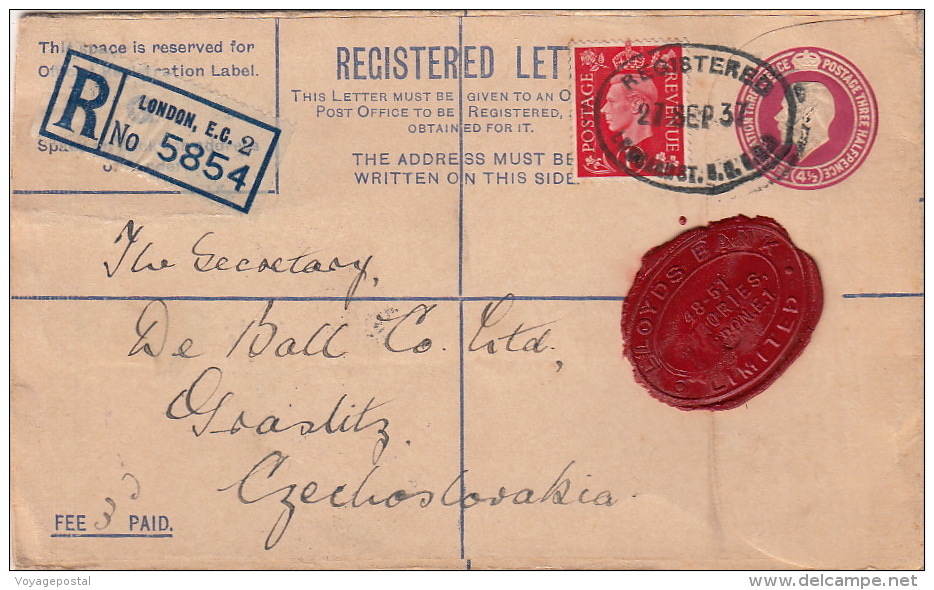 This space is reserved for
ration Label.
REGISTERED LET
THIS LETTER MUST BE GIVEN TO AN O
POST OFFICE TO BE REGISTERED,
OBTAINED FOR IT.
THE ADDRESS MUST BE
WRITTEN ON THIS SIDE
R LONDON, E.C. 2
No 5854
POSTAGE REVENUE
REGISTERED
27 SEP 37
POSTAGE THREE HALFPENCE
4½
The Secretary,
De Ball Co. Ltd,
Graslitz
Czechoslovakia
LLOYDS BANK
LIMITED
FEE 3d PAID.
Voyagepostal
delcampe.net